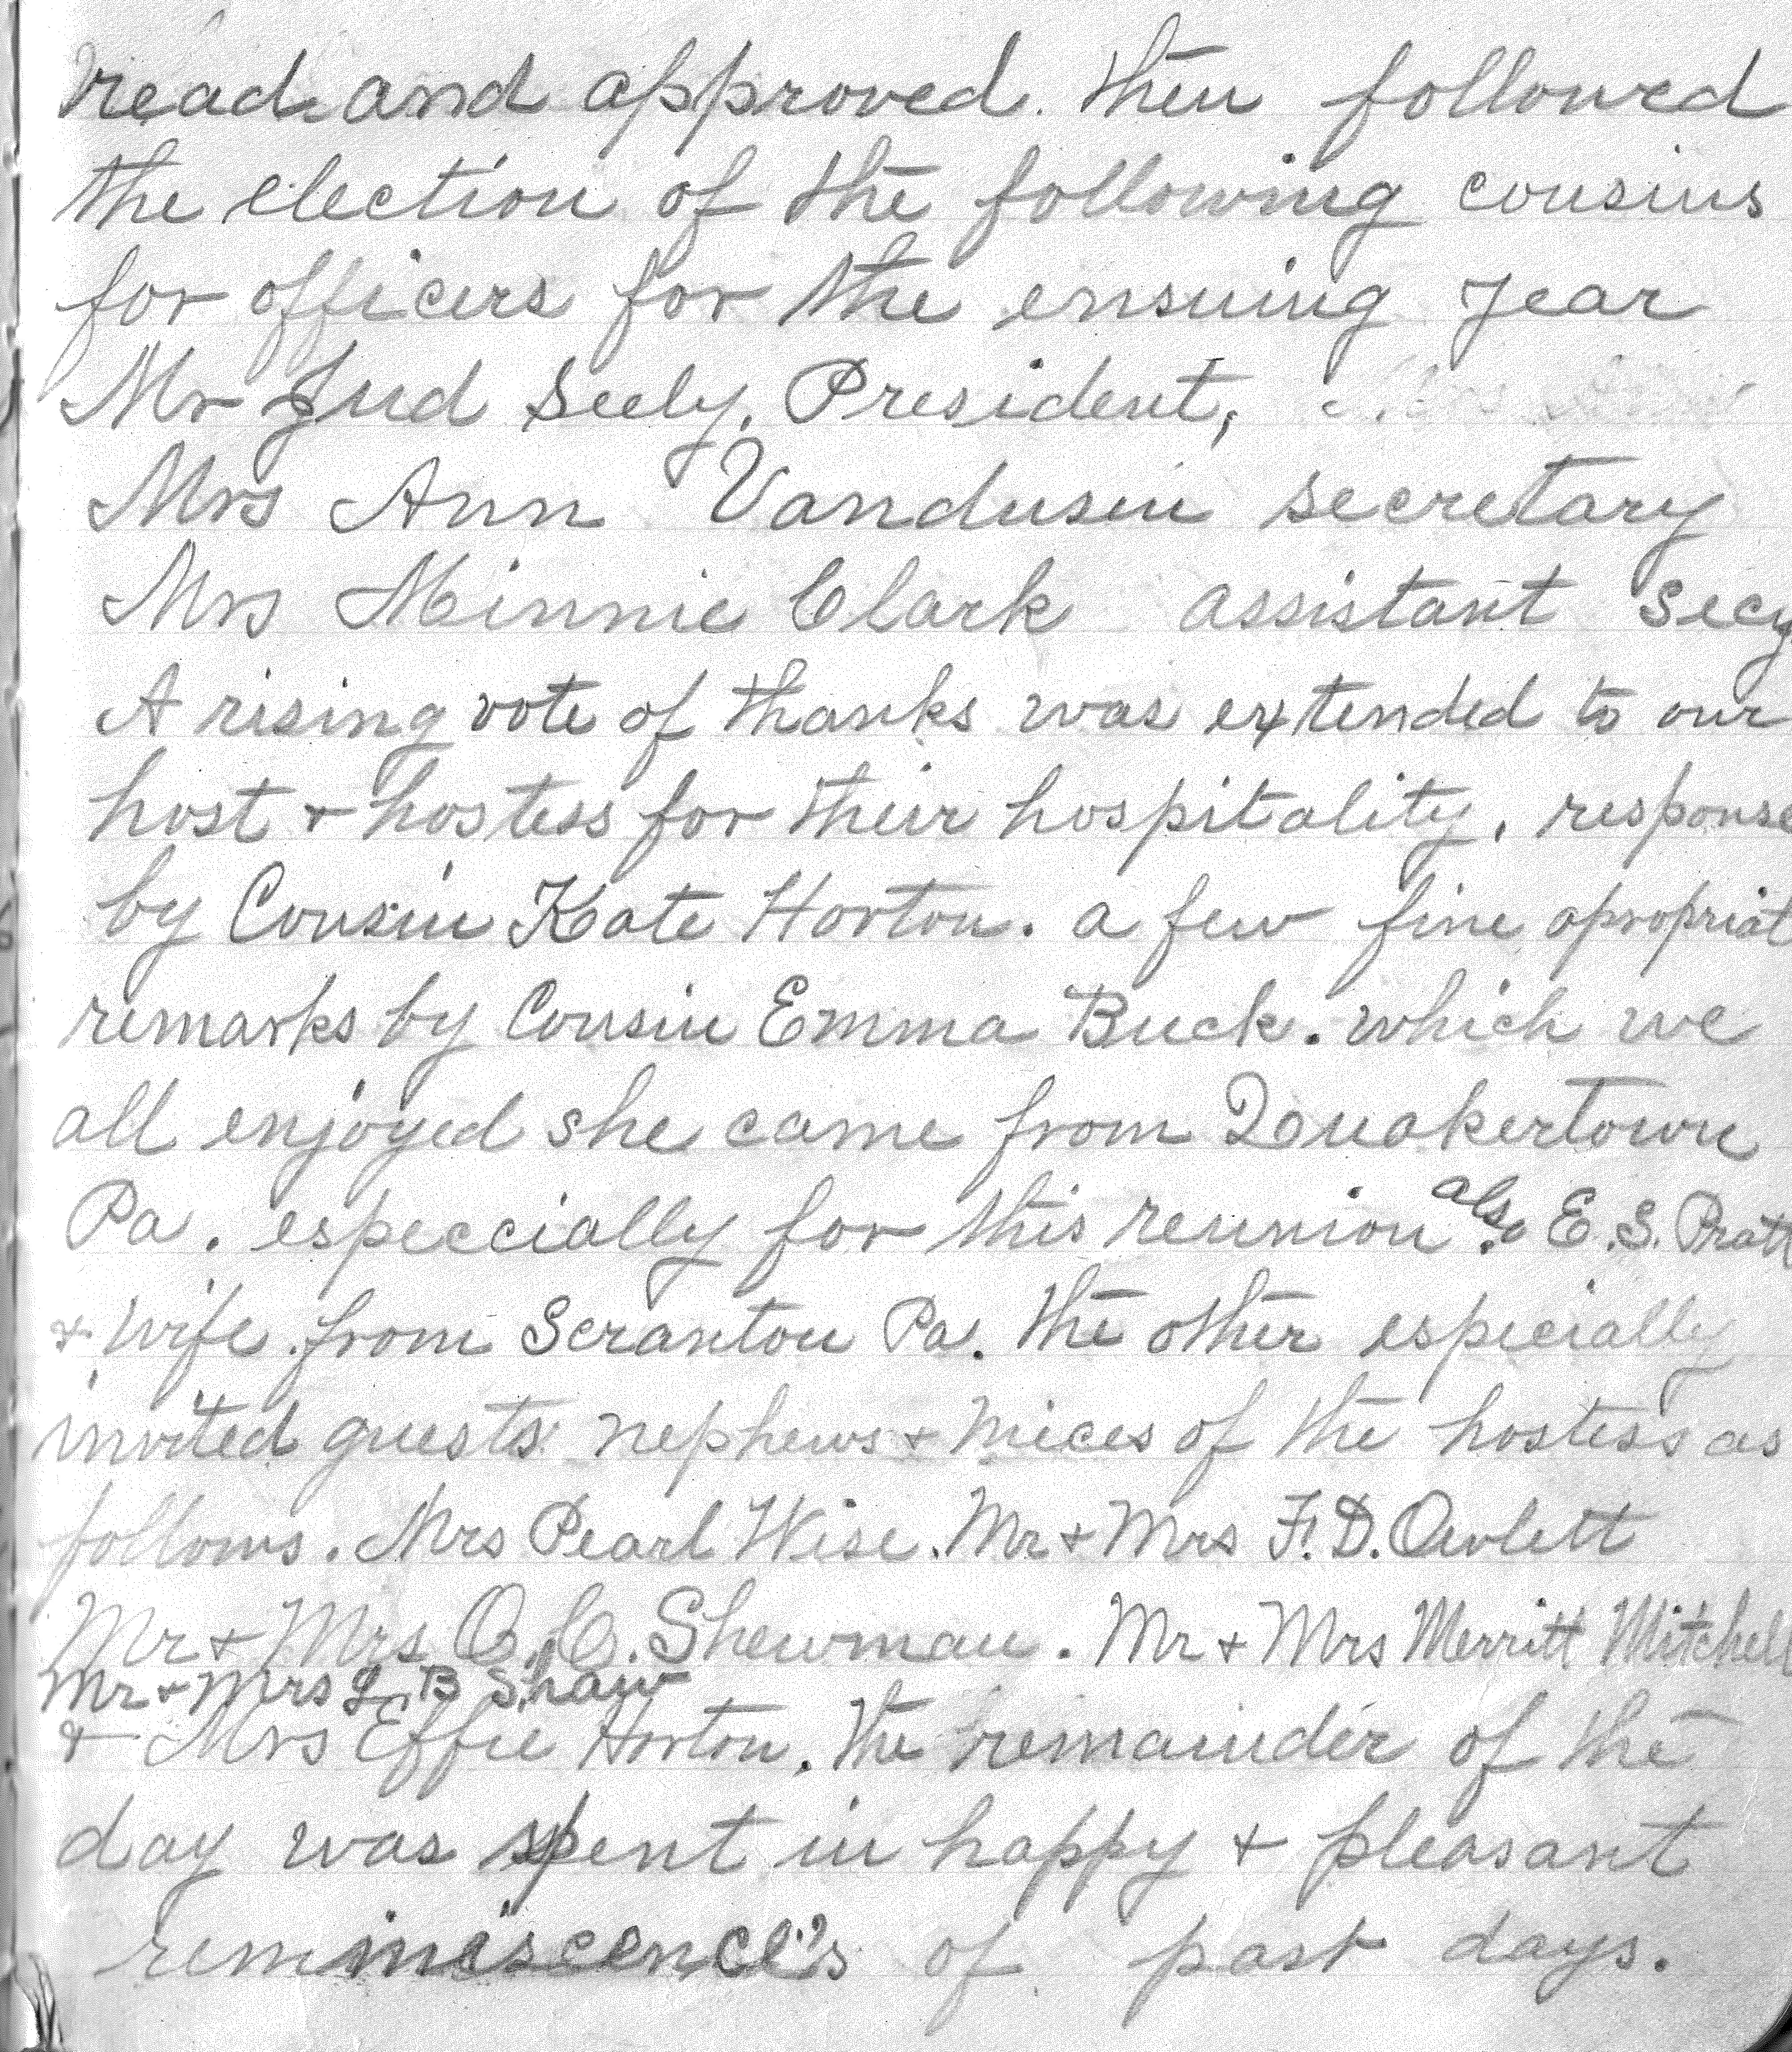 read and approved. then followed
the election of the following cousins
for officers for the ensuing year
Mr Jud Seely, President,
Mrs Ann Vandusen secretary
Mrs Minnie Clark assistant Secy
A rising vote of thanks was extended to our
host + hostess for their hospitality, response
by Cousin Kate Horton. a few fine apropriat
remarks by Cousin Emma Buck. which we
all enjoyed she came from Quakertown
Pa. especcially for this reunion also E.S. Pratt
+ wife from Scranton Pa. the other especially
invited guests nephews + nieces of the hostess as
follows. Mrs Pearl Wise. Mr + Mrs F.D. Owlett
Mr + Mrs O.C. Shewman. Mr + Mrs Merritt Mitchell
Mr + Mrs L B Shaw
+ Mrs Effie Horton. the remainder of the
day was spent in happy + pleasant
reminiscence's of past days.